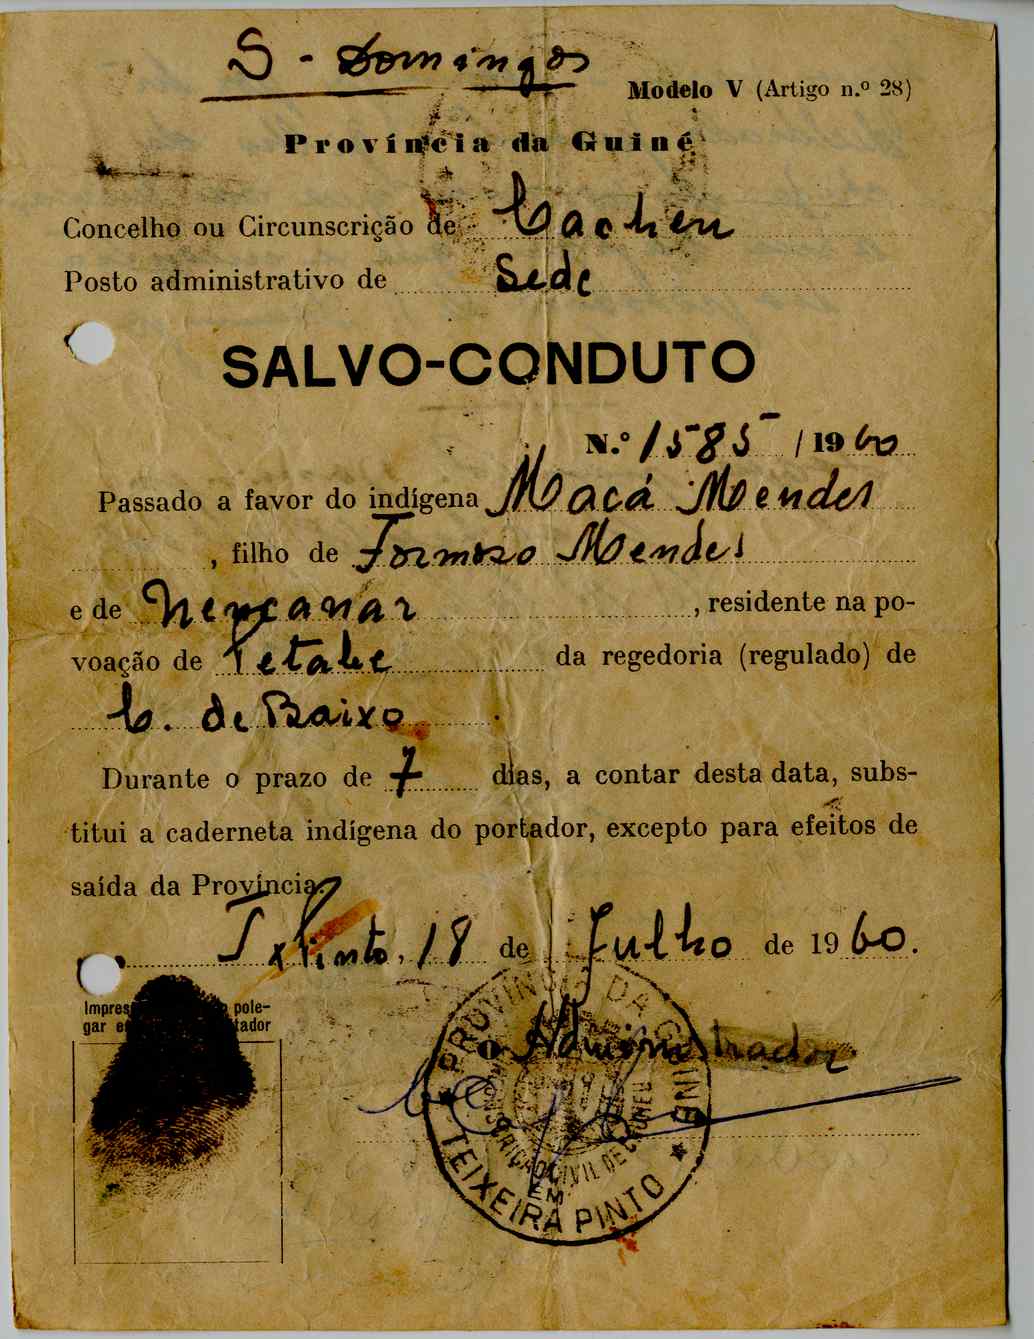 S - Domingos
Modelo V (Artigo n.º 28)
Província da Guiné
Concelho ou Circunscrição de Cacheu
Posto administrativo de Sede
SALVO-CONDUTO
N.º 1585 / 1960
Passado a favor do indígena Macá Mendes
, filho de Formoso Mendes
e de Nencanar, residente na po-
voação de Petabe da regedoria (regulado) de
C. de Baixo.
Durante o prazo de 7 dias, a contar desta data, subs-
titui a caderneta indígena do portador, excepto para efeitos de
saída da Província.
Tx Pinto, 18 de Julho de 1960.
Impres pole-
gar e tador
O Administrador
PROVÍNCIA DA GUINÉ
CIRCUNSCRIÇÃO CIVIL DE CACHEU
EM
TEIXEIRA PINTO